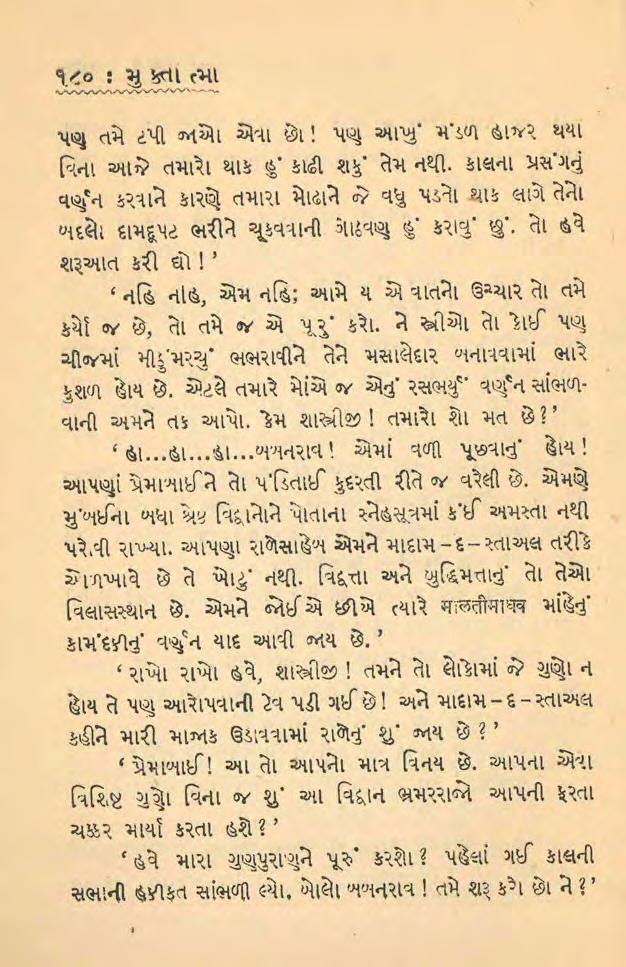 ૧૮૦ : મુ ક્તા ત્મા
પણ તમે ટપી જાઓ એવા છો! પણ આખું મંડળ હાજર થયા
વિના આજે તમારો થાક હું કાઢી શકું તેમ નથી. કાલના પ્રસંગનું
વર્ણન કરવાને કારણે તમારા મોઢાને જે વધુ પડતો થાક લાગે તેનો
બદલો દામદૂપટ ભરીને ચૂકવવાની ગોઠવણ હું કરાવું છું. તો હવે
શરૂઆત કરી દ્યો!’
‘નહિ નહિ, એમ નહિ; આમે ય એ વાતનો ઉચ્ચાર તો તમે
કર્યો જ છે, તો તમે જ એ પૂરું કરો. ને સ્ત્રીઓ તો કોઈ પણ
ચીજમાં મીઠુંમરચું ભભરાવીને તેને મસાલેદાર બનાવવામાં ભારે
કુશળ હોય છે. એટલે તમારે મોંએ જ એનું રસભર્યું વર્ણન સાંભળ-
વાની અમને તક આપો. કેમ શાસ્ત્રીજી! તમારો શો મત છે?’
‘હા...હા...હા...બબનરાવ! એમાં વળી પૂછવાનું હોય!
આપણાં પ્રેમાબાઈને તો પંડિતાઈ કુદરતી રીતે જ વરેલી છે. એમણે
મુંબઈના બધા શ્રેષ્ઠ વિદ્વાનોને પોતાના સ્નેહસૂત્રમાં કંઈ અમસ્તા નથી
પરોવી રાખ્યા. આપણા રાળેસાહેબ એમને માદામ–દ–સ્તાઅલ તરીકે
ઓળખાવે છે તે ખોટું નથી. વિદ્વત્તા અને બુદ્ધિમત્તાનું તો તેઓ
વિલાસસ્થાન છે. એમને જોઈએ છીએ ત્યારે मालतीमाधव માંહેનું
કામંદકીનું વર્ણન યાદ આવી જાય છે.’
‘રાખો રાખો હવે, શાસ્ત્રીજી! તમને તો લોકોમાં જે ગુણો ન
હોય તે પણ આરોપવાની ટેવ પડી ગઈ છે! અને માદામ–દ–સ્તાઅલ
કહીને મારી મજાક ઉડાવવામાં રાળેનું શું જાય છે?’
‘પ્રેમાબાઈ! આ તો આપનો માત્ર વિનય છે. આપના એવા
વિશિષ્ટ ગુણો વિના જ શું આ વિદ્વાન ભ્રમરરાજો આપની ફરતા
ચક્કર માર્યા કરતા હશે?’
‘હવે મારા ગુણપુરાણને પૂરું કરશો? પહેલાં ગઈ કાલની
સભાની હકીકત સાંભળી લ્યો. બોલો બબનરાવ! તમે શરૂ કરો છો ને?’